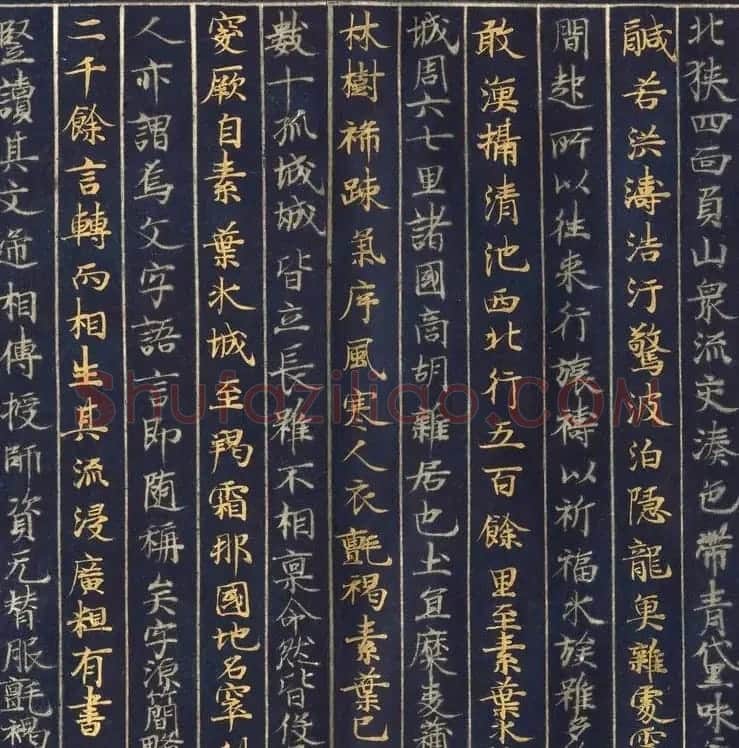 北狹四面負山衆流交湊色帶青黛味
鹹苦洪濤浩汗驚波泊隱龍魚雜處靈
間起所以往来行旅禱以祈福水族雖多
敢漁捕清池西北行五百餘里至素葉水
城周六七里諸國商胡雜居也土宜糜麦蒲
林樹稀疎氣序風寒人衣氈褐素葉已
數十孤城城皆立長雖不相稟命然皆役
突厥自素葉水城至羯霜那國地名窣
人亦謂焉文字語言即随稱矣字源簡略
二千餘言轉而相生其流浸廣粗有書
竪讀其文遞相傳授師資无替服氈褐
Shufaziliao.COM